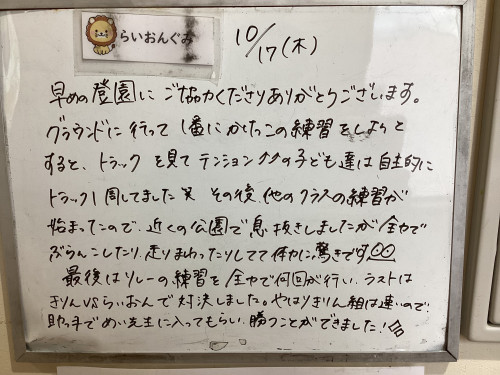 らいおんぐみ
10/17(木)
早めの登園にご協力くださりありがとうございます。
グラウンドに行って1番にかけっこの練習をしようと
すると、トラックを見てテンション↑↑の子ども達は自主的に
トラック1周してました笑 その後、他のクラスの練習が
始まったので、近くの公園で息抜きしましたが全力で
ぶらんこしたり、走りまわったりしてて体力に驚きです
最後はリレーの練習を全力で何回か行い、ラストは
きりんVSらいおんで対決しました。やはりきりん組は速いので
助っ手でめい先生に入ってもらい、勝つことができました!